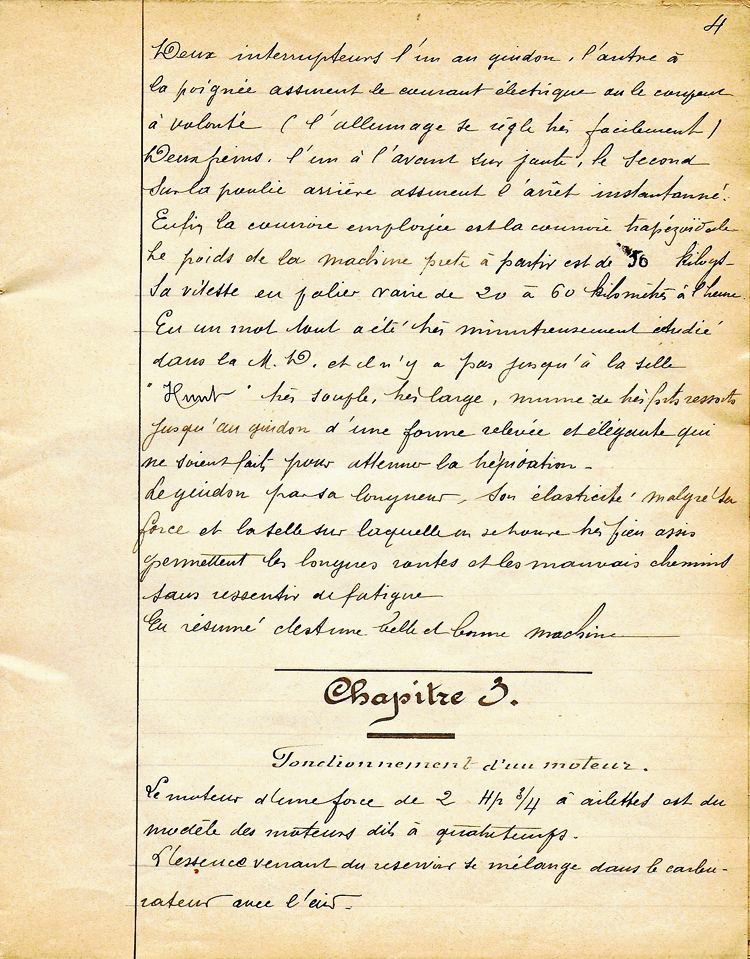 4
Deux interrupteurs l'un au guidon, l'autre à
la poignée assurent le courant électrique ou le coupent
à volonté (l'allumage se règle très facilement)
Deux freins, l'un à l'avant sur jante, le second
sur la poulie arrière assurent l'arrêt instantanné.
Enfin la courroie employée est la courroie trapézoïdale
Le poids de la machine prete à partir est de 50 kilogs-
Sa vitesse en palier varie de 20 à 60 kilomètres à l'heure.
En un mot tout a été très minutieusement étudié
dans la M. D. et il n'y a pas jusqu'à la selle
"Hunt" très souple, très large, munie de très forts ressorts
jusqu'au guidon d'une forme relevée et élégante qui
ne soient faits pour attenuer la trépidation -
Le guidon par sa longueur, son élasticité malgré sa
force et la selle sur laquelle on se trouve très bien assis
permettent les longues routes et les mauvais chemins
sans ressentir de fatigue
En résumé c'est une belle et bonne machine
Chapitre 3.
Fonctionnement d'un moteur.
Le moteur d'une force de 2 HP 3/4 à ailettes est du
modèle des moteurs dits à quatretemps.
L'essence venant du reservoir se mélange dans le carbu-
rateur avec l'air.